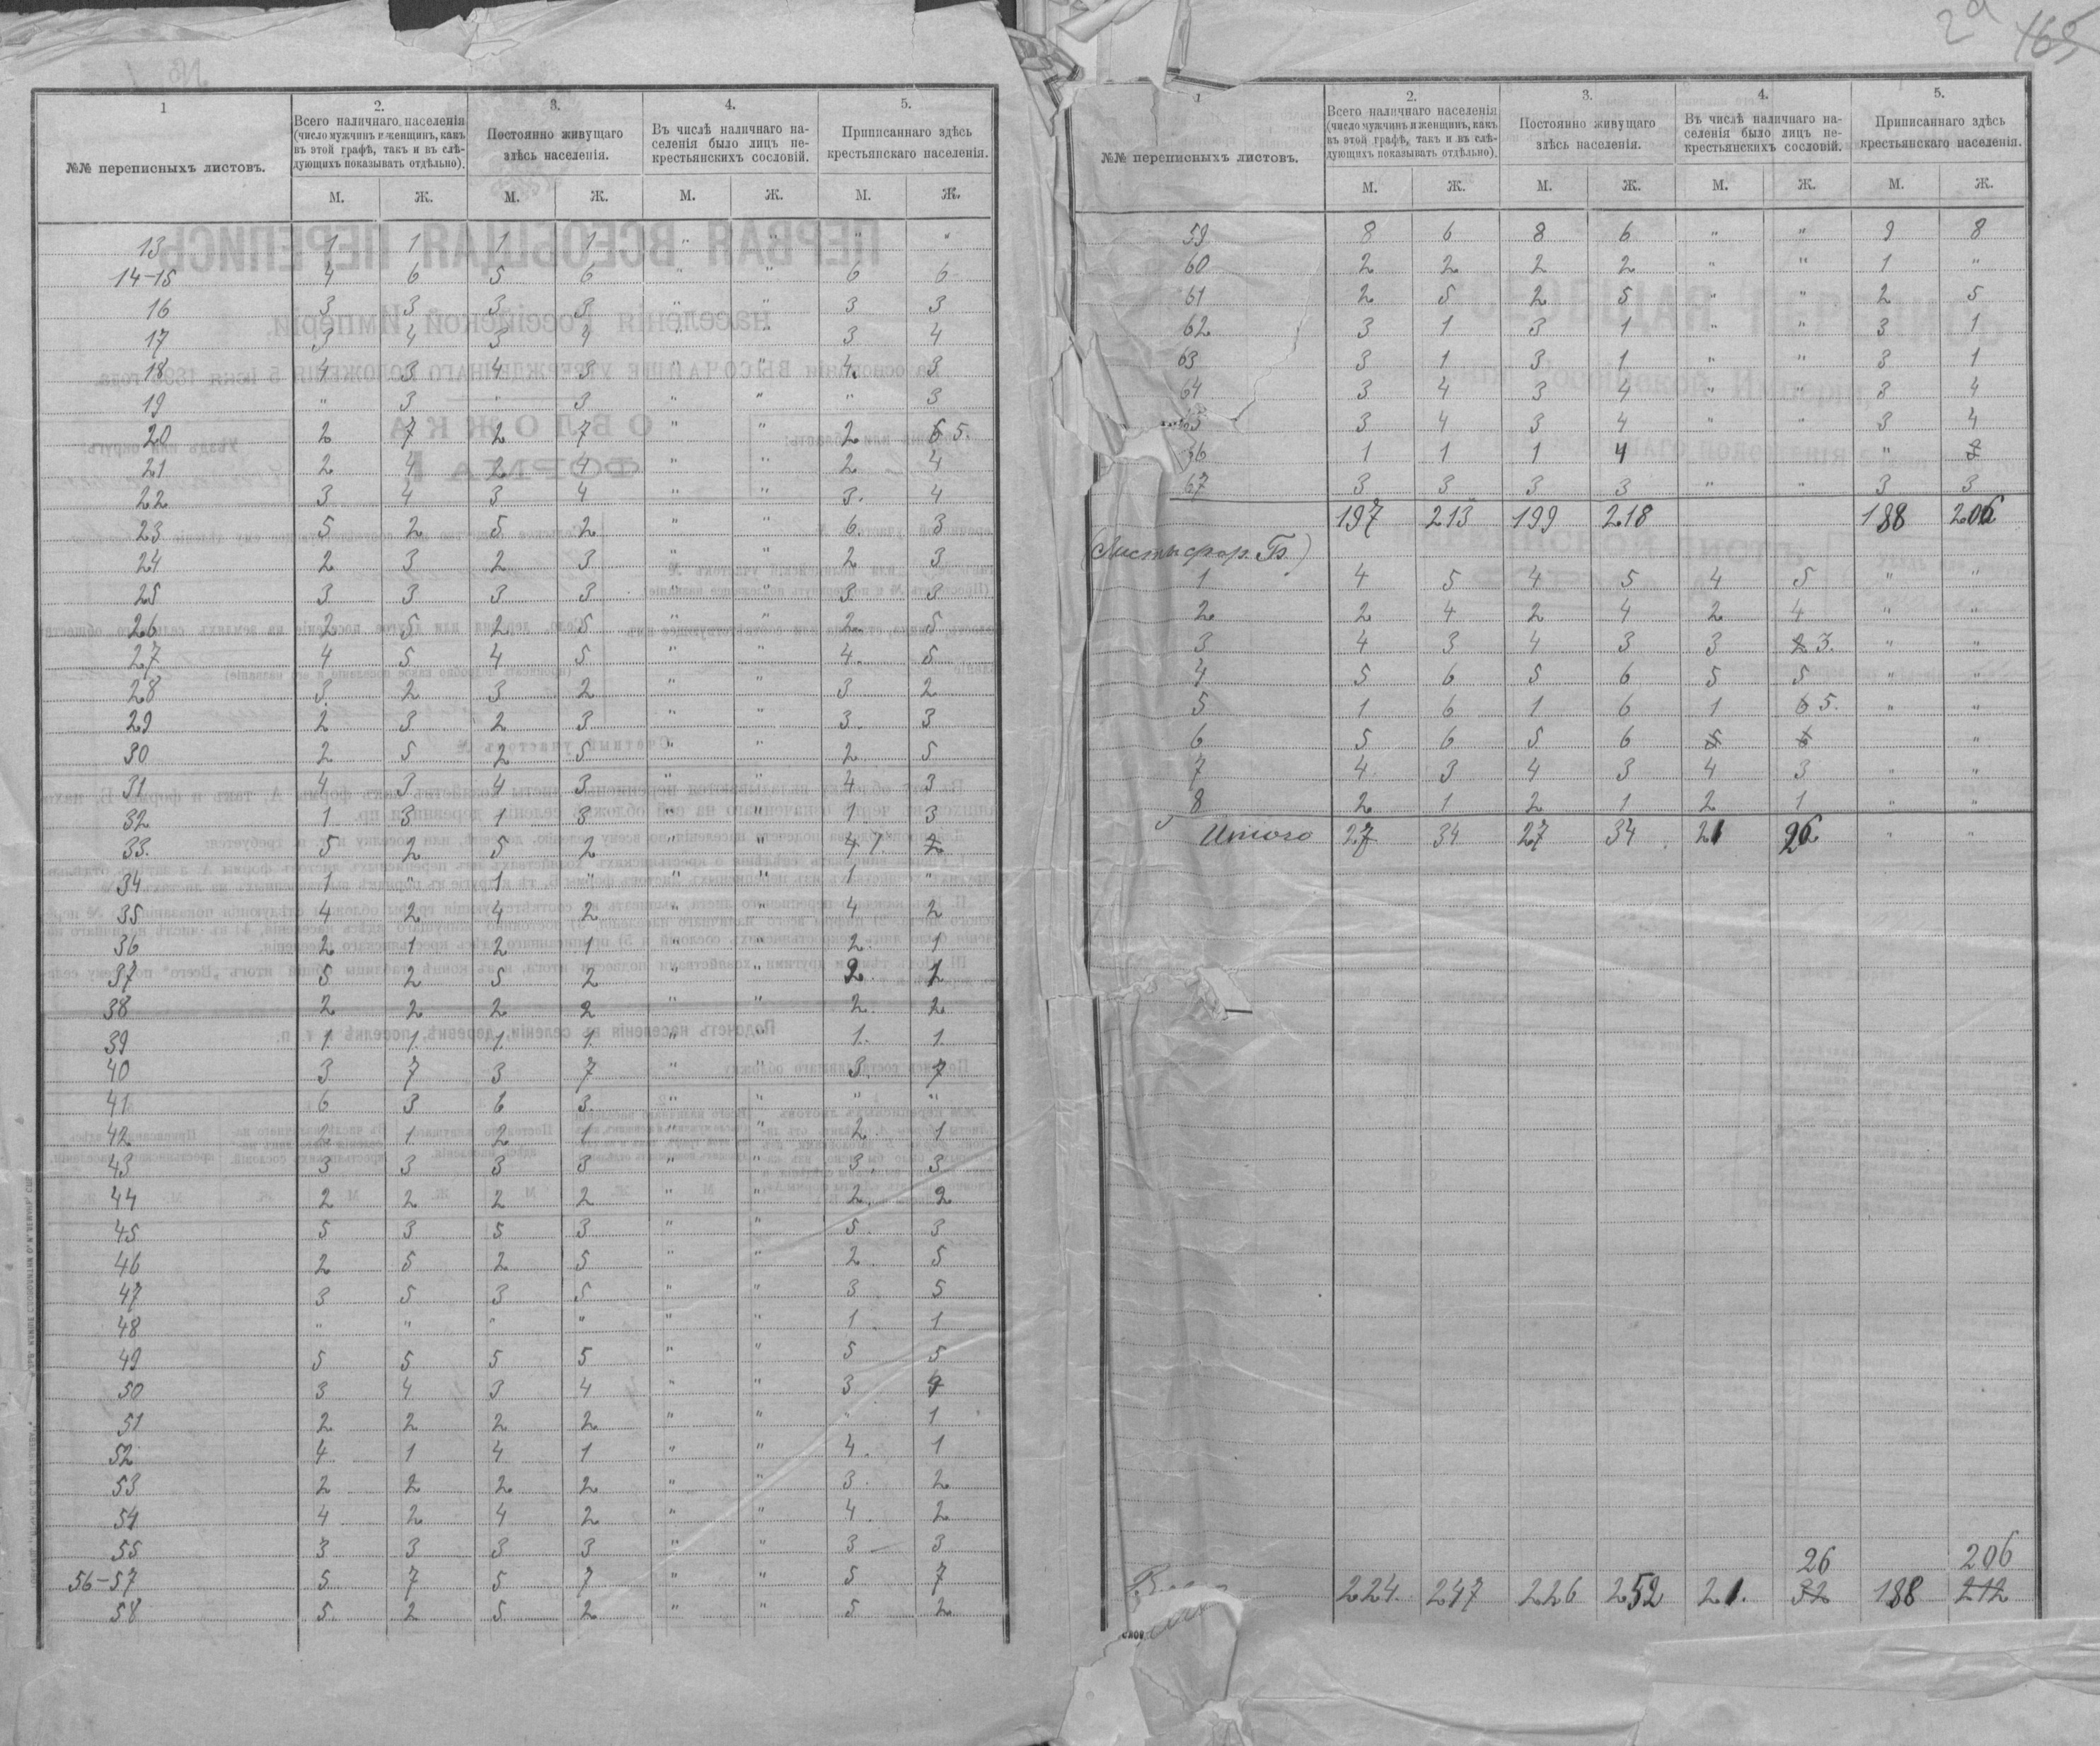 2а 165
1 2. 3. 4. 5.
№№ переписныхъ листовъ.
Всего наличнаго населенія
(число мужчинъ и женщинъ, какъ
въ этой графѣ, такъ и въ слѣ-
дующихъ показывать отдѣльно).
Постоянно живущаго
здѣсь населенія.
Въ числѣ наличнаго на-
селенія было лицъ не-
крестьянскихъ сословій.
Приписаннаго здѣсь
крестьянскаго населенія.
М. Ж. М. Ж. М. Ж. М. Ж.
13 1 1 1 1 " " " "
14-15 4 6 5 6 " " 6 6
16 3 3 3 3 " " 3 3
17 3 4 3 4 " " 3 4
18 4 3 4 3 " " 4. 3
19 " 3 " 3 " " " 3
20 2 7 2 7 " " 2 6 5.
21 2 4 2 4 " " 2 4
22 3 4 3 4 " " 3. 4
23 5 2 5 2 " " 6. 3
24 2 3 2 3 " " 2 3
25 3 3 3 3 " " 3 3
26 2 5 2 5 " " 2 5
27 4 5 4 5 " " 4. 5
28 3 2 3 2 " " 3 2
29 2 3 2 3 " " 3. 3
30 2 5 2 5 " " 2 5
31 4 3 4 3 " " 4 3
32 1 3 1 3 " " 1 3
33. 5 2 5 2 " " 4 7. 2
34 1 " 1 " " " 1 "
35 4 2 4 2 " " 4 2
36 2 1 2 1 " " 2. 1
37 5 2 5 2 " " 2. 1
38 2 2 2 2 " " 2. 2
39 1. 1. 1. 1. " " 1. 1.
40 3 7 3 7 " " 3. 7
41 6 3 6 3. " " " "
42 2 1 2 1 " " 2. 1
43 3 3 3 3 " " 3. 3
44 2 2 2 2 " " 2. 2
45 5 3 5 3 " " 5. 3
46 2 5 2 5 " " 2. 5
47 3 5 3 5 " " 3 5
48 " " " " " " 1. 1
49 5 5 5 5 " " 5 5
50 3 4 3 4 " " 3. 4
51 2 2 2 2 " " " 1
52 4 1 4 1 " " 4. 1
53 2 2 2 2 " " 3. 2
54 4 2 4 2 " " 4. 2
55 3 3 3 3 " " 3 3
56-57 5 7 5 7 " " 5 7
58 5. 2 5. 2 " " 5 2
1 2. 3. 4. 5.
№№ переписныхъ листовъ.
Всего наличнаго населенія
(число мужчинъ и женщинъ, какъ
въ этой графѣ, такъ и въ слѣ-
дующихъ показывать отдѣльно).
Постоянно живущаго
здѣсь населенія.
Въ числѣ наличнаго на-
селенія было лицъ не-
крестьянскихъ сословій.
Приписаннаго здѣсь
крестьянскаго населенія.
М. Ж. М. Ж. М. Ж. М. Ж.
59 8 6 8 6 " " 9 8
60 2 2 2 2 " " 1 "
61 2 5 2 5 " " 2 5
62 3 1 3 1 " " 3 1
63 3 1 3 1 " " 3 1
64 3 4 3 4 " " 3 4
65 3 4 3 4 " " 3 4
66 1 1 1 4 " 2
67 3 3 3 3 " " 3 3
197 213 199 218 188 206
(Листы фор. Б.)
1 4 5 4 5 4 5 " "
2 2 4 2 4 2 4 " "
3 4 3 4 3 3 2 3. " "
4 5 6 5 6 5 5 " "
5 1 6 1 6 1 6 5. " "
6 5 6 5 6 5 6 "
7 4 3 4 3 4 3 " "
8 2 1 2 1 2 1 " "
Итого 27 34 27 34 21 26 " "
26 206
224. 247 226 252 21. 32 188 212